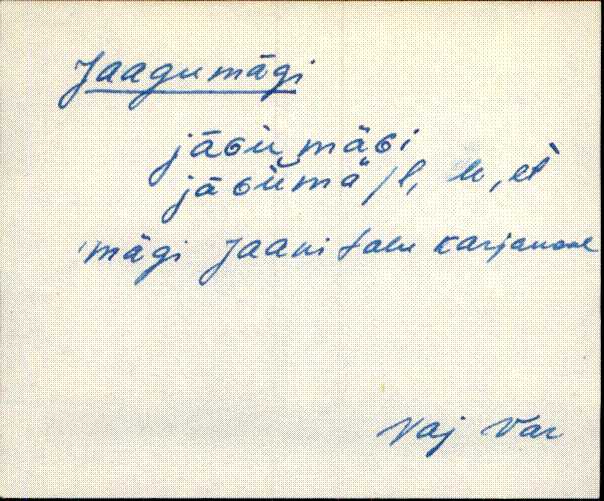 Jaagumägi
jāɢu mäɢi
jāɢumä /l, le, et̀
'mägi Jaani talu karjamaal
Vaj Var